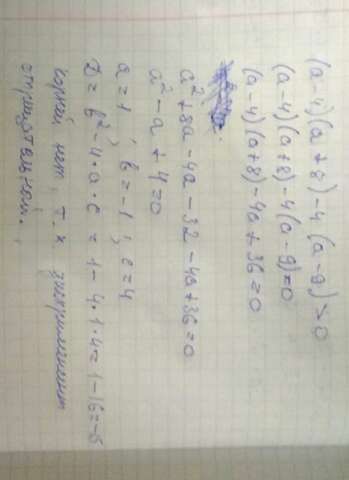 (a-4)(a+8)-4(a-9)>0
(a-4)(a+8)-4(a-9)=0
(a-4)(a+8)-4a+36=0
a²+8a-4a-32-4a+36=0
a²-a+4=0
a=1, b=-1, c=4
D=b²-4·a·c=1-4·1·4=1-16=-15
корней нет, т.к дискриминант
отрицательный.